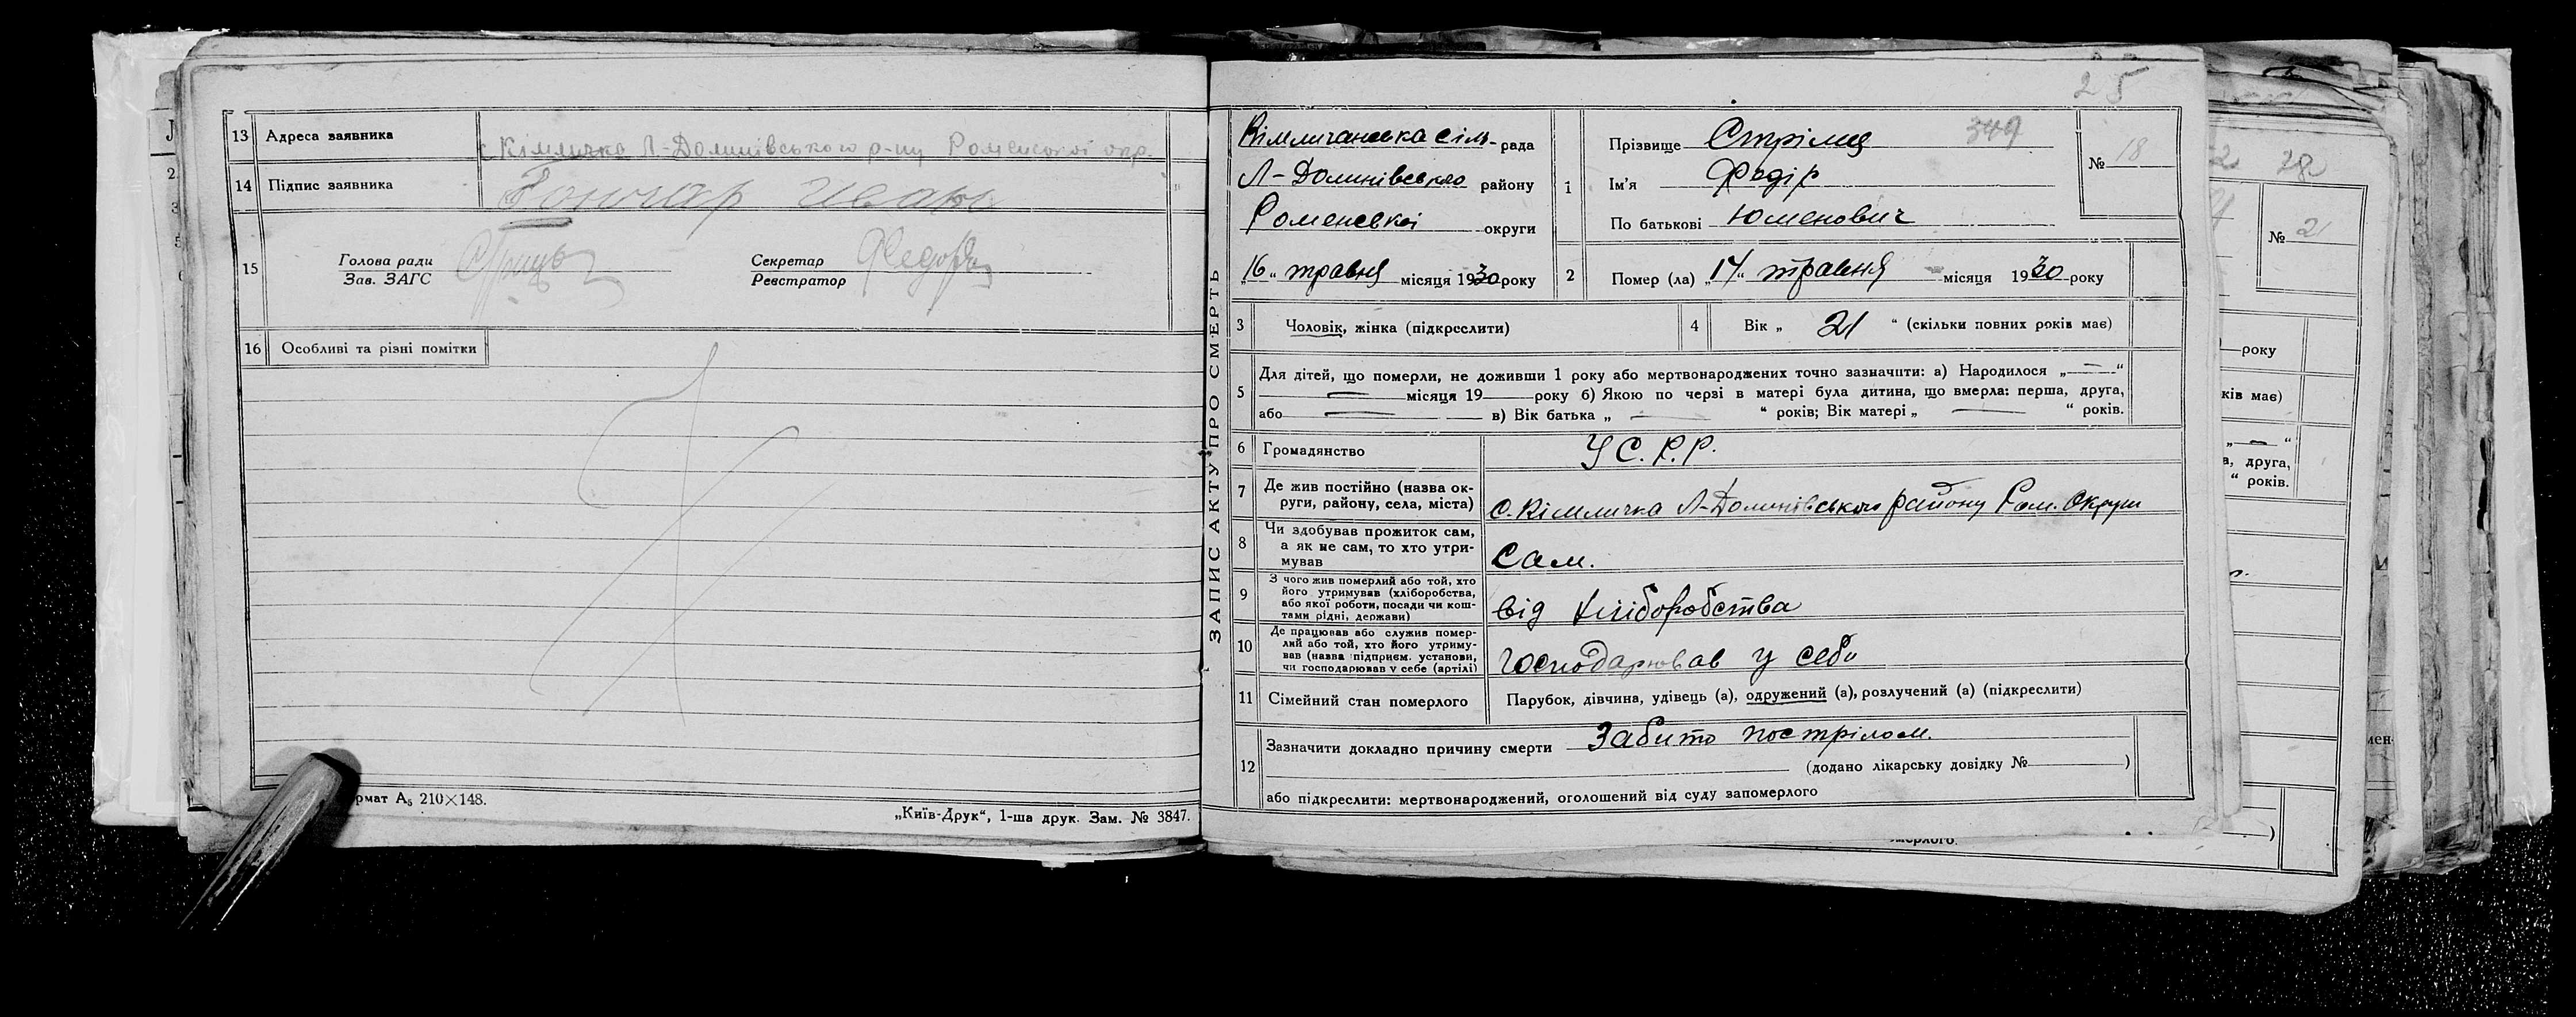 13 Адреса заявника с Кімличка Л-Долинівського р-ну Роменської окр.
14 Підпис заявника Гончар Иван
15 Голова ради
Зав. ЗАГС
Секретар
Реєстратор
16 Особливі та різні помітки
рмат А5 210×148.
„Київ-Друк“, 1-ша друк. Зам. № 3847.
ЗАПИС АКТУ ПРО СМЕРТЬ
25
Кімличанська сіль-рада
Л-Долинівського району
Роменської округи
„16“ травня місяця 1930 року
1 Прізвище Стрілец 349
Ім'я Федір
По батькові Юменович
№ 18
2 Помер (ла) „14“ травня місяця 1930 року
3 Чоловік, жінка (підкреслити)
4 Вік „ 21 “ (скільки повних років має)
5 Для дітей, що померли, не доживши 1 року або мертвонароджених точно зазначити: а) Народилося „—“
— місяця 19— року б) Якою по черзі в матері була дитина, що вмерла: перша, друга,
або — в) Вік батька „ — “ років; Вік матері „ — “ років.
6 Громадянство У С. Р. Р.
7 Де жив постійно (назва ок-
руги, району, села, міста) с. Кімличка Л-Долинівського району Ром. Округи
8 Чи здобував прожиток сам,
а як не сам, то хто утри-
мував Сам.
9 З чого жив померлий або той, хто
його утримував (хліборобства,
або якої роботи, посади чи кош-
тами рідні, держави) від хліборобства
10 Де працював або служив помер-
лий або той, хто його утриму-
вав (назва підприєм. установи,
чи господарював у себе (артілі) господарював у себе
11 Сімейний стан померлого Парубок, дівчина, удівець (а), одружений (а), розлучений (а) (підкреслити)
12 Зазначити докладно причину смерти Забито пострілом.
(додано лікарську довідку № )
або підкреслити: мертвонароджений, оголошений від суду запомерлого
28
№ 21
року
ків має)
„—“
а, друга,
“ років.
мерлого.